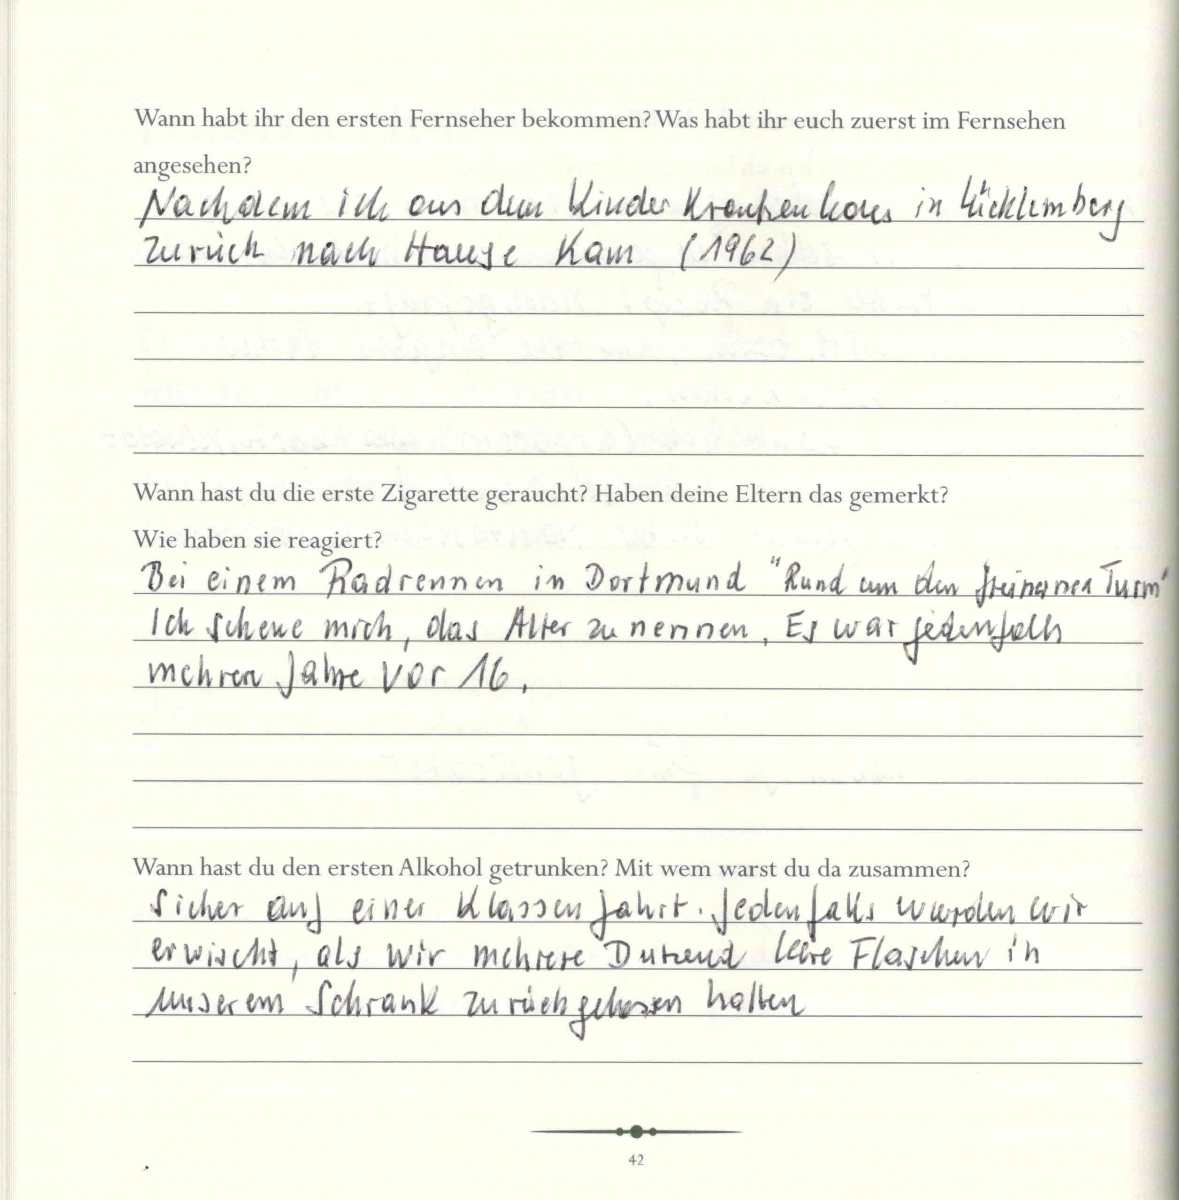 Wann habt ihr den ersten Fernseher bekommen? Was habt ihr euch zuerst im Fernsehen
angesehen?
Nachdem ich aus dem Kinder Krankenhaus in Lücklemberg
zurück nach Hause kam (1962)
Wann hast du die erste Zigarette geraucht? Haben deine Eltern das gemerkt?
Wie haben sie reagiert?
Bei einem Radrennen in Dortmund "Rund um den steinernen Turm"
Ich scheue mich, das Alter zu nennen, Es war jedenfalls
mehren Jahre vor 16.
Wann hast du den ersten Alkohol getrunken? Mit wem warst du da zusammen?
Sicher auf einer Klassenfahrt. Jedenfalls wurden wir
erwischt, als wir mehrere Dutzend leere Flaschen in
unserem Schrank zurückgelassen hatten
42